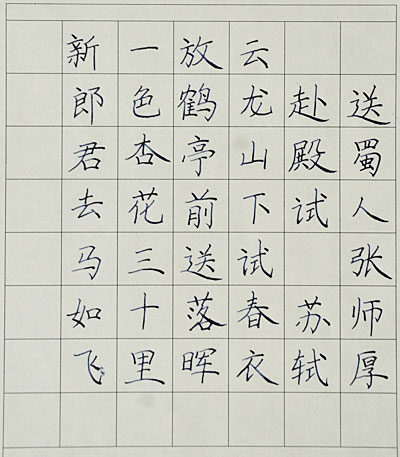 送蜀人张师厚
赴殿试 苏轼
云龙山下试春衣
放鹤亭前送落晖
一色杏花三十里
新郎君去马如飞